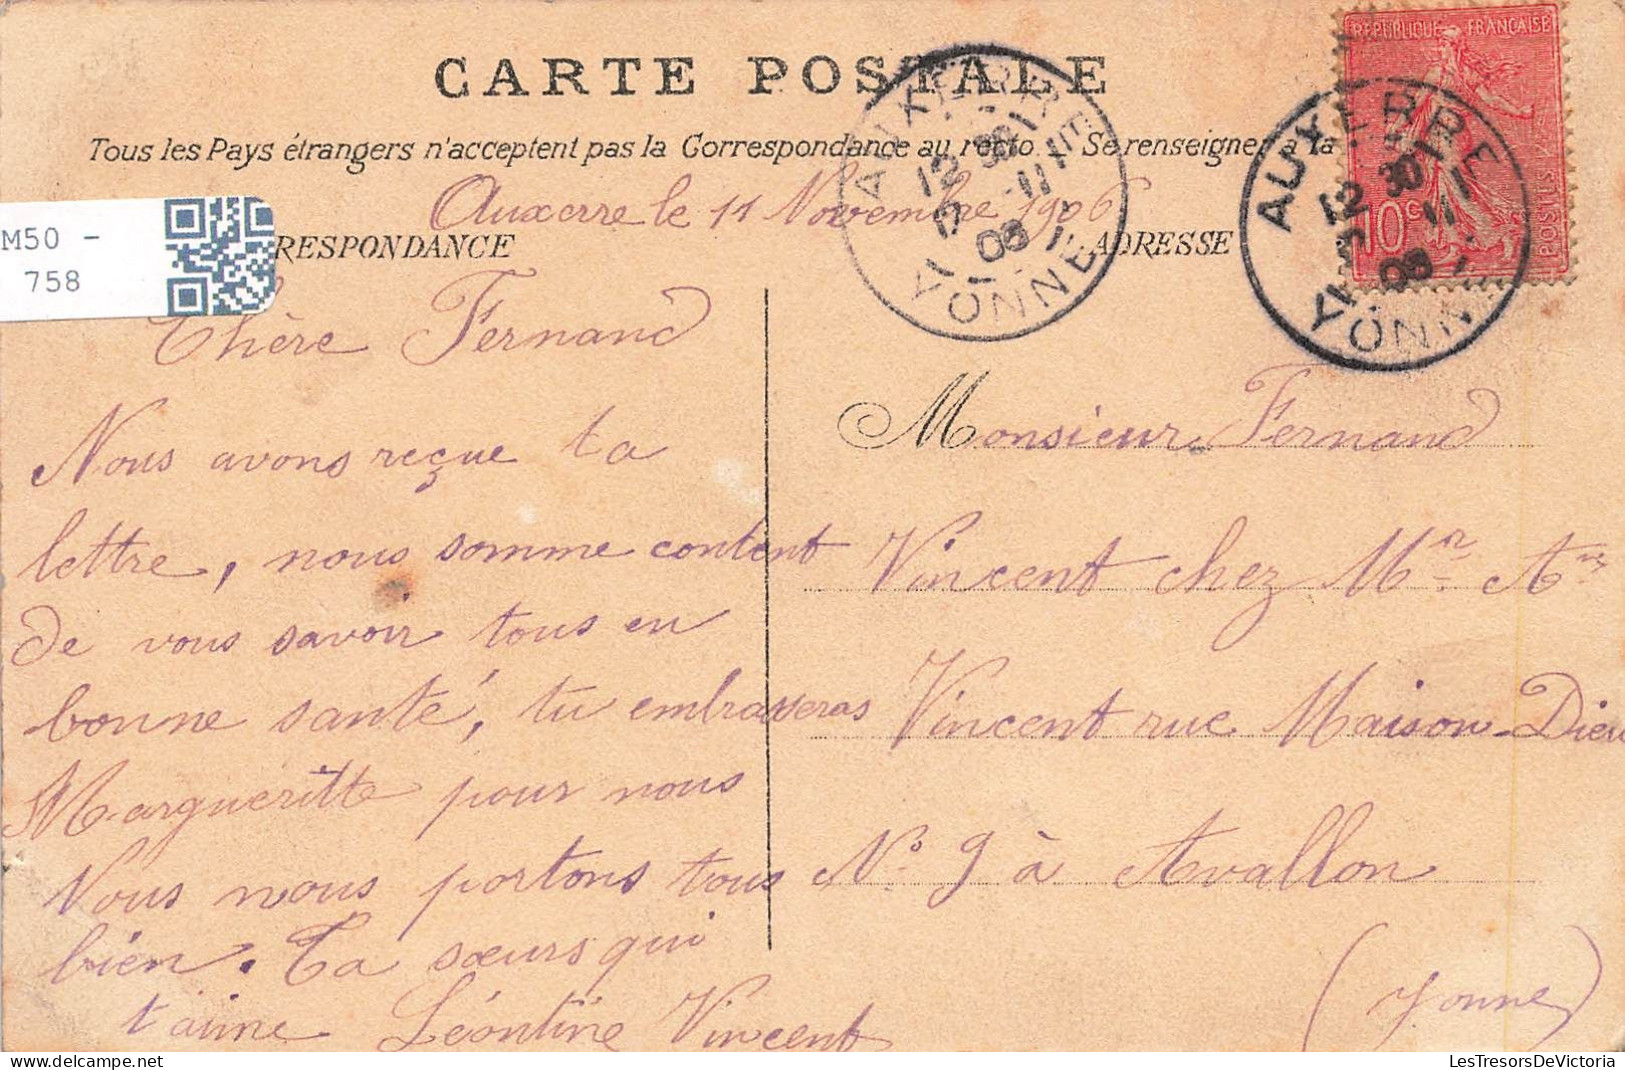 CARTE POSTALE
Tous les Pays étrangers n'acceptent pas la Correspondance au recto. Se renseigner à la
Auxerre le 11 Novembre 1906
RESPONDANCE
ADRESSE
M50 -
758
REPUBLIQUE FRANÇAISE
10c
POSTES
AUXERRE
12 30
11
06
YONNE
AUXERRE
12 30
11
06
YONNE
Chère Fernand
Nous avons reçue ta
lettre, nous somme content
de vous savoir tous en
bonne santé, tu embrasseras
Margueritte pour nous
Nous nous portons tous
bien. Ta sœurs qui
t'aime Léontine Vincent
Monsieur Fernand
Vincent chez Mr Ate
Vincent rue Maison-Dieu
No 9 à Avallon
(Yonne)
LesTresorsDeVictoria